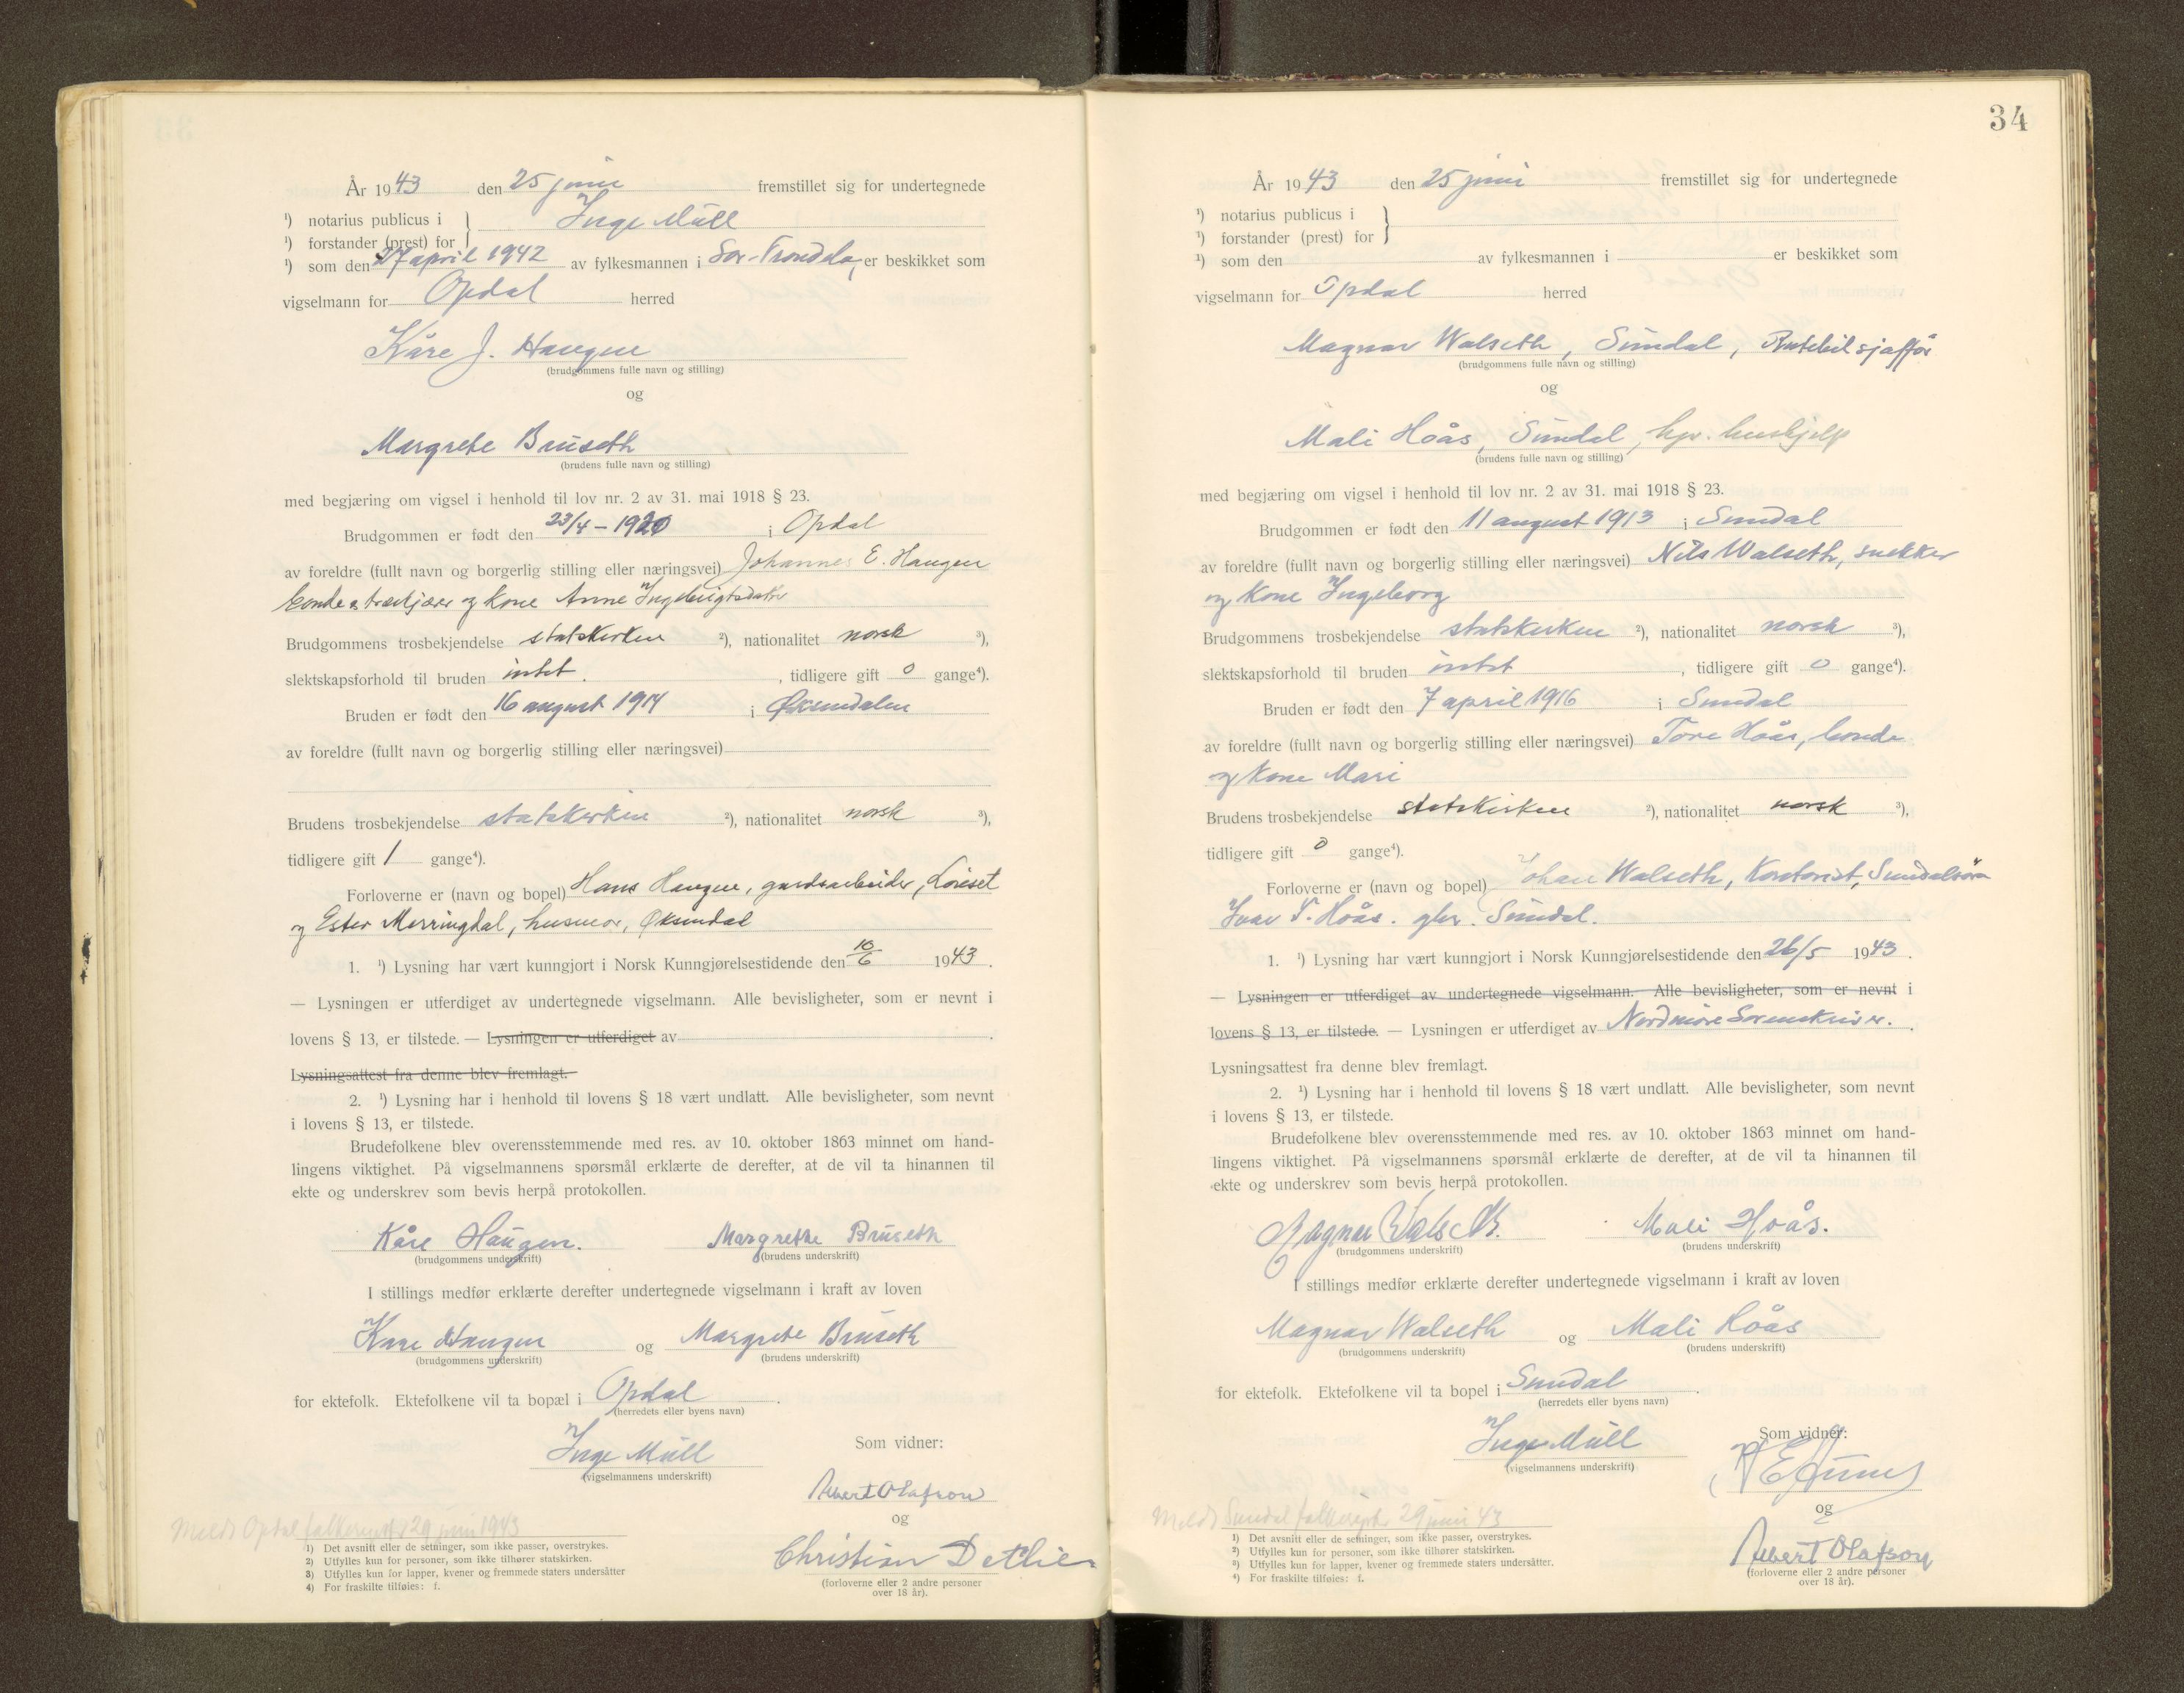 År 1943 den 25 juni fremstillet sig for undertegnede
¹) notarius publicus i } Inge Müll
¹) forstander (prest) for
¹) som den 27 april 1942 av fylkesmannen i Sør-Trøndelag er beskikket som
vigselmann for Opdal herred
Kåre J. Haugen
(brudgommens fulle navn og stilling)
og
Margrete Bruseth
(brudens fulle navn og stilling)
med begjæring om vigsel i henhold til lov nr. 2 av 31. mai 1918 § 23.
Brudgommen er født den 23/4 – 1920 i Opdal
av foreldre (fullt navn og borgerlig stilling eller næringsvei) Johannes E. Haugen
bonde og kone Anne Ingebrigtsdatter
Brudgommens trosbekjendelse statskirken ²), nationalitet norsk ³),
slektskapsforhold til bruden intet. , tidligere gift 0 gange⁴).
Bruden er født den 16 august 1914 i Øksendalen
av foreldre (fullt navn og borgerlig stilling eller næringsvei)
Brudens trosbekjendelse statskirken ²), nationalitet norsk ³),
tidligere gift 1 gange⁴).
Forloverne er (navn og bopel) Hans Haugen, gardsarbeider, Lønset
og Ester Merringdal, husmor, Øksendal
1. ¹) Lysning har vært kunngjort i Norsk Kunngjørelsestidende den 10/6 1943.
— Lysningen er utferdiget av undertegnede vigselmann. Alle bevisligheter, som er nevnt i
lovens § 13, er tilstede. — Lysningen er utferdiget av
Lysningsattest fra denne blev fremlagt.
2. ¹) Lysning har i henhold til lovens § 18 vært undlatt. Alle bevisligheter, som nevnt
i lovens § 13, er tilstede.
Brudefolkene blev overensstemmende med res. av 10. oktober 1863 minnet om hand-
lingens viktighet. På vigselmannens spørsmål erklærte de derefter, at de vil ta hinannen til
ekte og underskrev som bevis herpå protokollen.
Kåre Haugen. Margrethe Bruseth
(brudgommens underskrift) (brudens underskrift)
I stillings medfør erklærte derefter undertegnede vigselmann i kraft av loven
Kåre Haugen og Margrete Bruseth
(brudgommens underskrift) (brudens underskrift)
for ektefolk. Ektefolkene vil ta bopæl i Opdal.
(herredets eller byens navn)
Inge Müll
(vigselmannens underskrift)
Som vidner:
Albert Olafson
og
Christian Dethie
(forloverne eller 2 andre personer
over 18 år).
Meldt Opdal folkeregister 29 juni 1943
1) Det avsnitt eller de setninger, som ikke passer, overstrykes.
2) Utfylles kun for personer, som ikke tilhører statskirken.
3) Utfylles kun for lapper, kvener og fremmede staters undersåtter
4) For fraskilte tilføies: f.
34
År 1943 den 25 juni fremstillet sig for undertegnede
¹) notarius publicus i }
¹) forstander (prest) for
¹) som den av fylkesmannen i er beskikket som
vigselmann for Opdal herred
Magnar Walseth, Sundal, Rutebilsjaffør
(brudgommens fulle navn og stilling)
og
Mali Hoås, Sundal, hjv. hushjelp
(brudens fulle navn og stilling)
med begjæring om vigsel i henhold til lov nr. 2 av 31. mai 1918 § 23.
Brudgommen er født den 11 august 1913 i Sundal
av foreldre (fullt navn og borgerlig stilling eller næringsvei) Nils Walseth, snekker
og kone Ingeborg
Brudgommens trosbekjendelse statskirken ²), nationalitet norsk ³),
slektskapsforhold til bruden intet , tidligere gift 0 gange⁴).
Bruden er født den 7 april 1916 i Sundal
av foreldre (fullt navn og borgerlig stilling eller næringsvei) Tore Hoås, bonde
og kone Mari
Brudens trosbekjendelse statskirken ²), nationalitet norsk ³),
tidligere gift 0 gange⁴).
Forloverne er (navn og bopel) Johan Walseth, Kontorist, Sundalsøra
Ivar T. Hoås. gbr. Sundal.
1. ¹) Lysning har vært kunngjort i Norsk Kunngjørelsestidende den 26/5 1943.
— Lysningen er utferdiget av undertegnede vigselmann. Alle bevisligheter, som er nevnt i
lovens § 13, er tilstede. — Lysningen er utferdiget av Nordmøre Sorenskriver.
Lysningsattest fra denne blev fremlagt.
2. ¹) Lysning har i henhold til lovens § 18 vært undlatt. Alle bevisligheter, som nevnt
i lovens § 13, er tilstede.
Brudefolkene blev overensstemmende med res. av 10. oktober 1863 minnet om hand-
lingens viktighet. På vigselmannens spørsmål erklærte de derefter, at de vil ta hinannen til
ekte og underskrev som bevis herpå protokollen.
Magnar Walseth. Mali Hoås.
(brudgommens underskrift) (brudens underskrift)
I stillings medfør erklærte derefter undertegnede vigselmann i kraft av loven
Magnar Walseth og Mali Hoås
(brudgommens underskrift) (brudens underskrift)
for ektefolk. Ektefolkene vil ta bopel i Sundal.
(herredets eller byens navn)
Inge Müll
(vigselmannens underskrift)
Som vidner:
og
Albert Olafson
(forloverne eller 2 andre personer
over 18 år).
Meldt Sundal folkeregister 29 juni 43
1) Det avsnitt eller de setninger, som ikke passer, overstrykes.
2) Utfylles kun for personer, som ikke tilhører statskirken.
3) Utfylles kun for lapper, kvener og fremmede staters undersåtter.
4) For fraskilte tilføies: f.